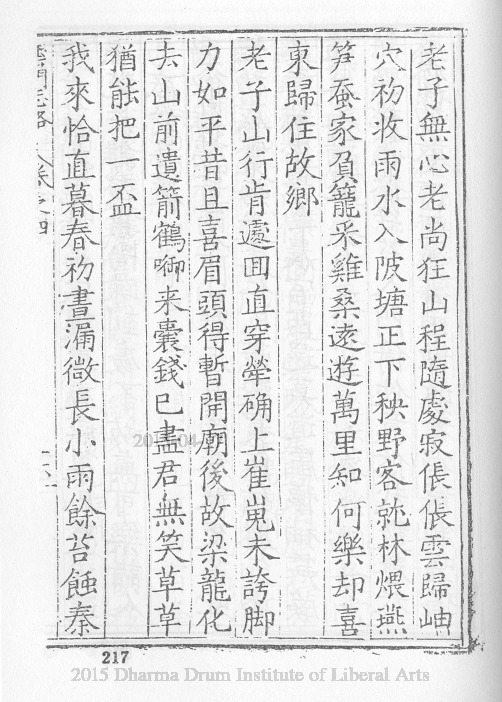 老子無心老尚狂山程隨處寂倀倀雲歸岫
穴初收雨水入陂塘正下秧野客就林煨燕
笋蚕家負籠采雞桑遠遊萬里知何樂却喜
東歸住故鄉
老子山行肯遽囬直穿犖确上崔嵬未誇脚
力如平昔且喜眉頭得暫開廟後故梁龍化
去山前遺箭鶴啣来囊錢已盡君無笑草草
猶能把一盃
我來恰直暮春初晝漏微長小雨餘苔蝕秦
雲門志略 卷之四
217
2015 Dharma Drum Institute of Liberal Arts